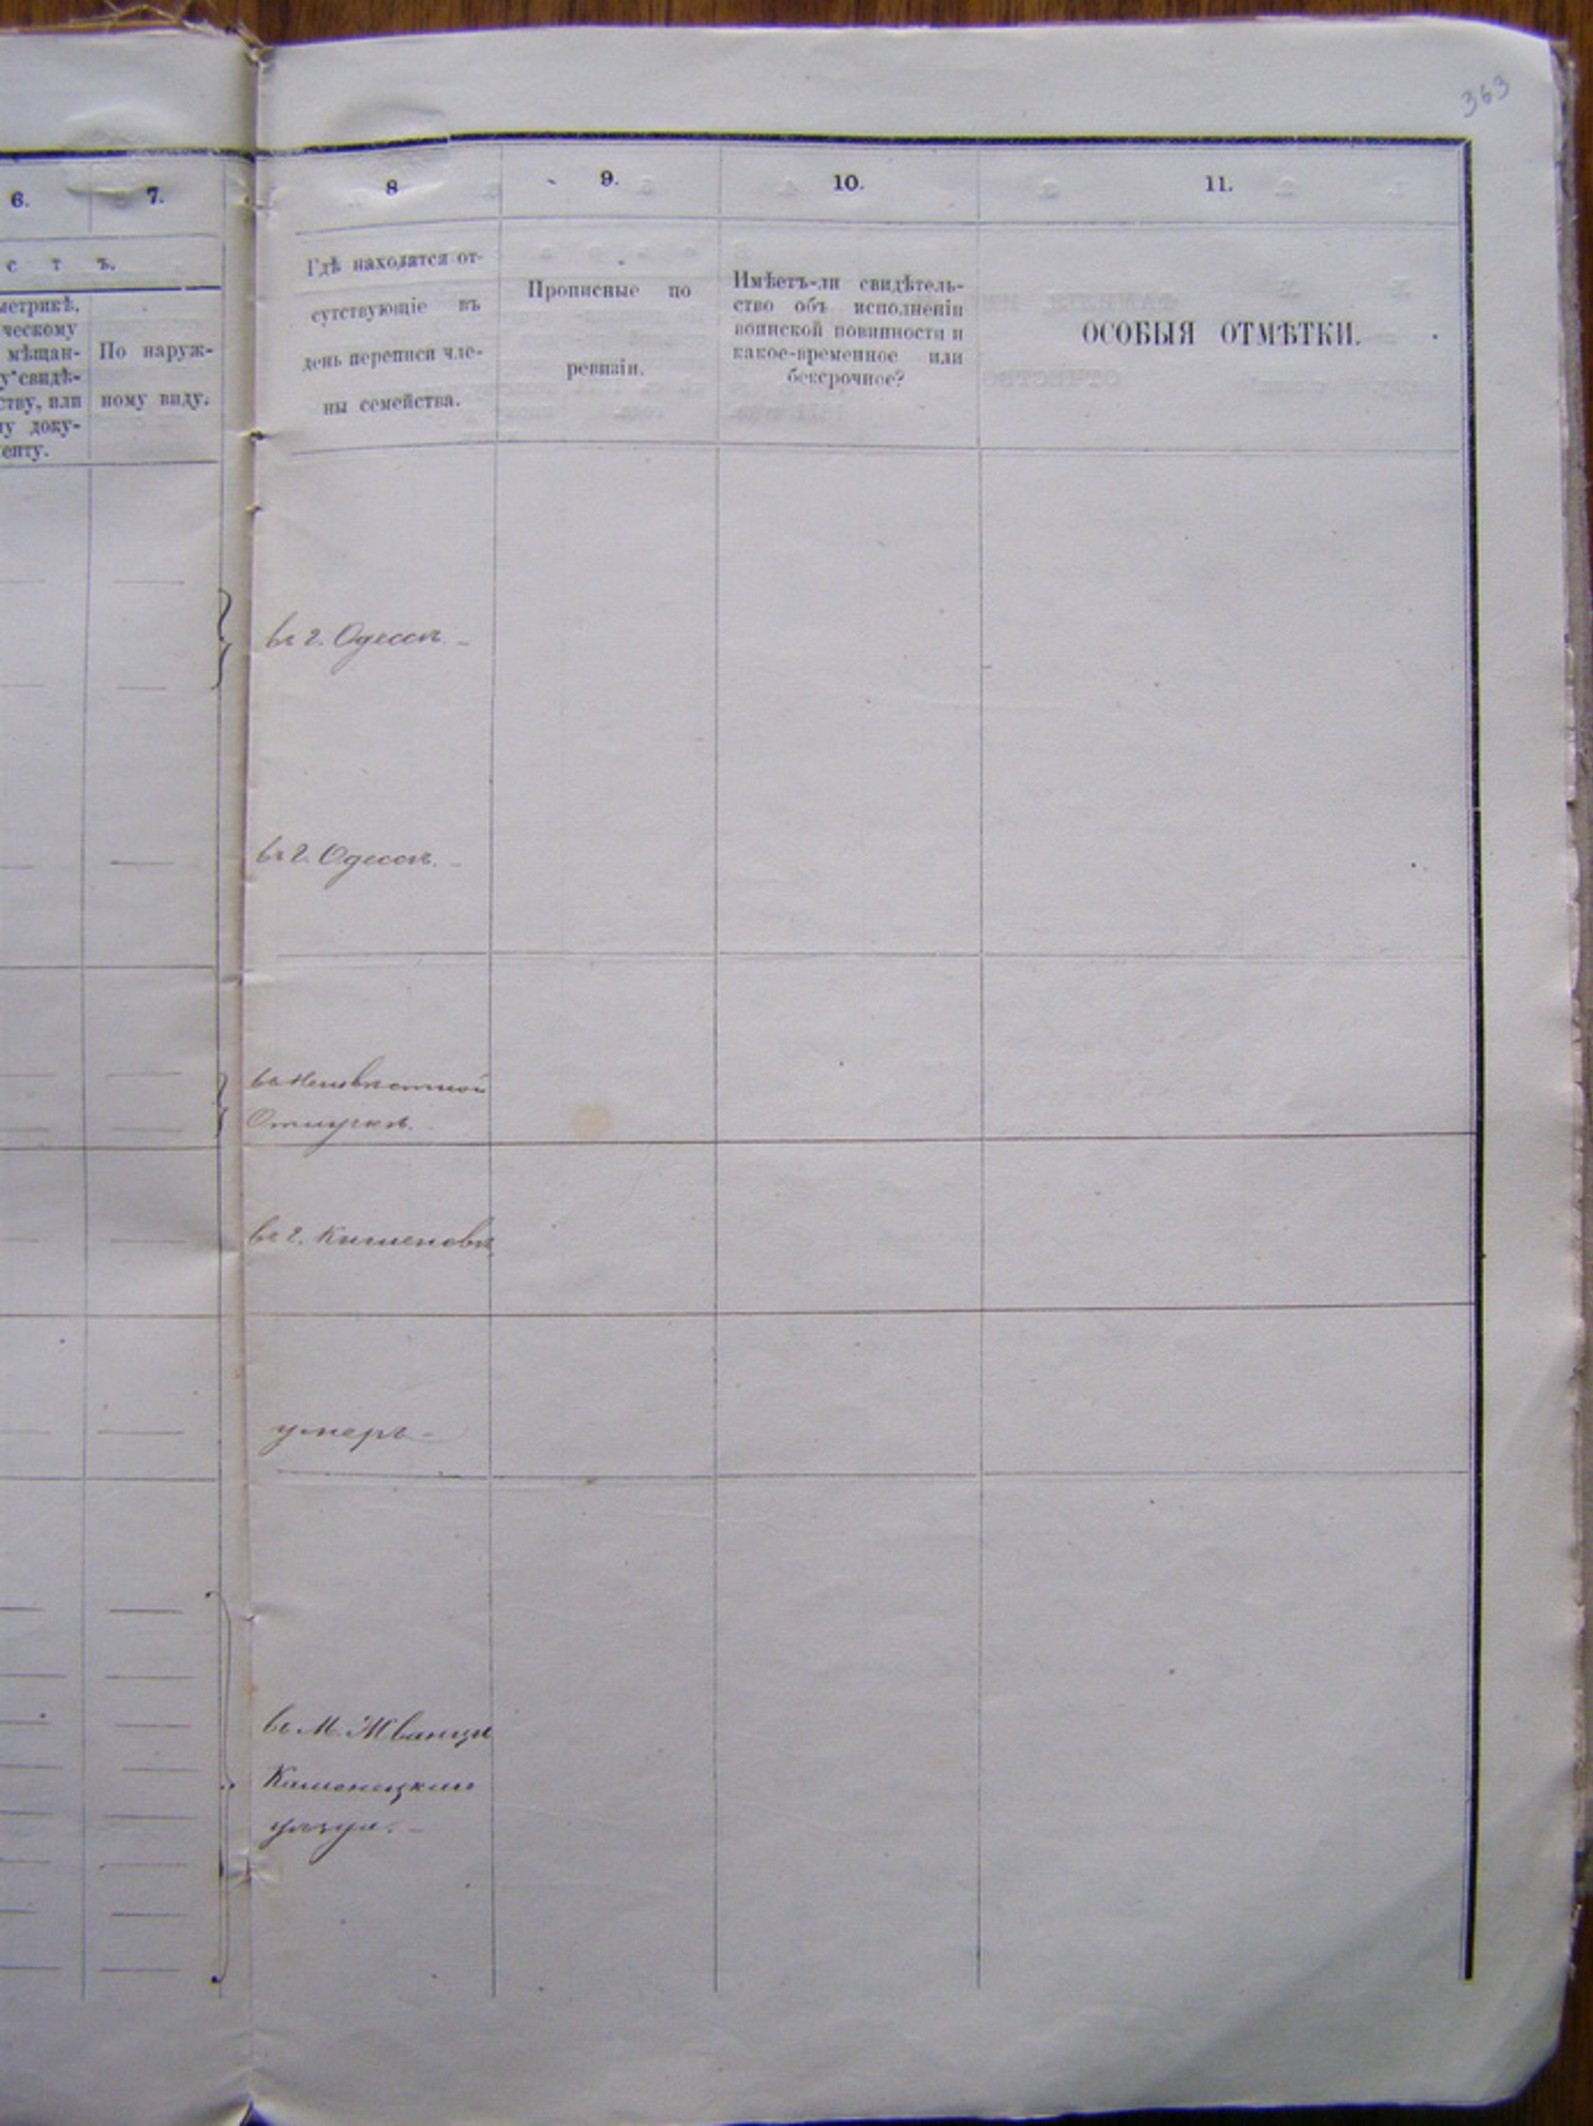 363
6.
7.
8
9.
10.
11.
с т ъ.
метрикѣ,
ческому
мѣщан-
у свидѣ-
ству, или
у доку-
енту.
По наруж-
ному виду.
Гдѣ находятся от-
сутствующіе въ
день переписи чле-
ны семейства.
Прописные по
ревизіи.
Имѣетъ-ли свидѣтель-
ство объ исполненіи
воинской повинности и
какое-временное или
безсрочное?
ОСОБЫЯ ОТМѢТКИ.
въ г. Одессѣ. –
въ г. Одессѣ. –
въ неизвѣстной
Отлучкѣ.
въ г. Кишеневѣ
умеръ –
въ М. Жванцѣ
Каменецкаго
уѣзда. –